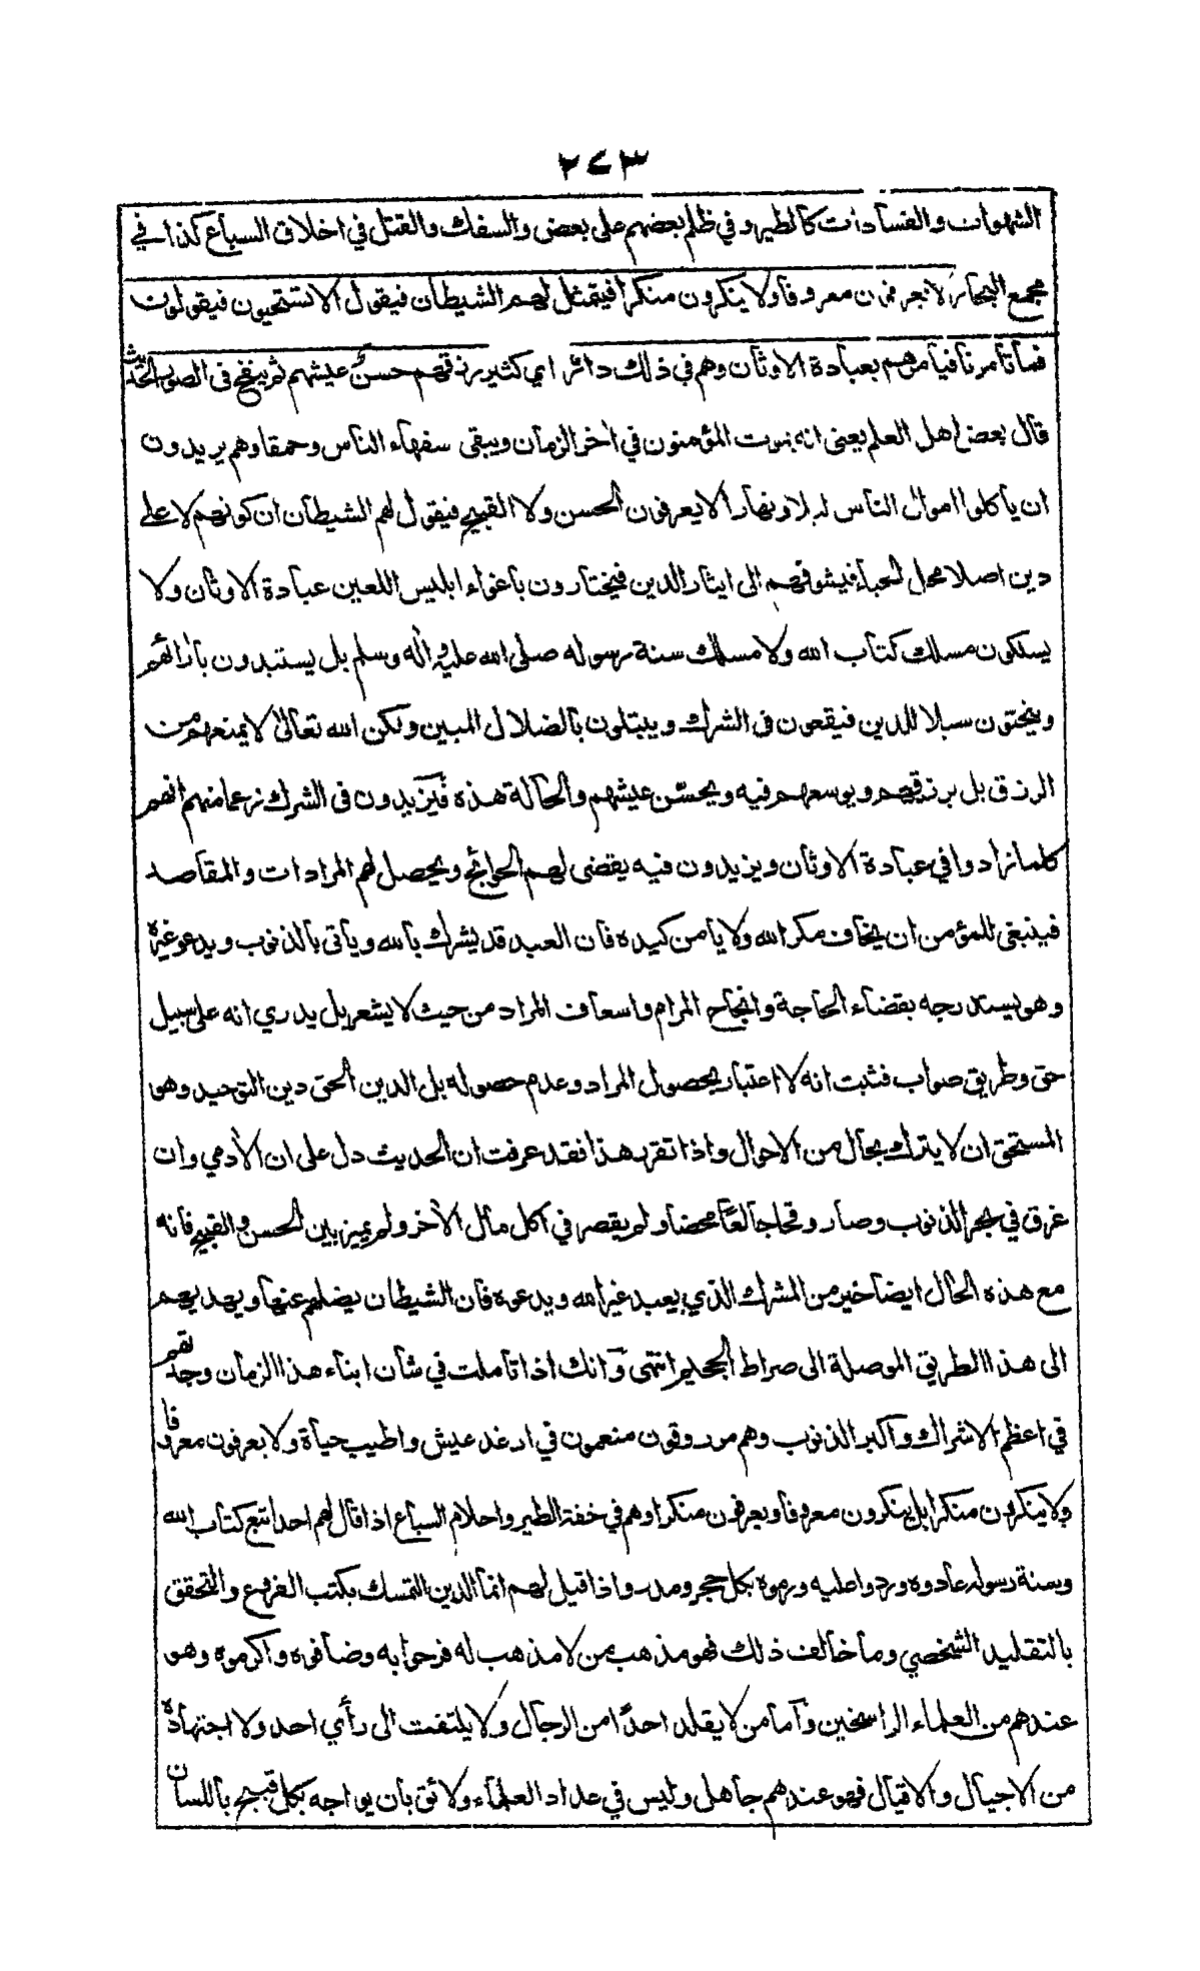 ٢٧٣
الشهوات والفسادات كالطير وفي ظلم بعضهم على بعض والسفك والقتل في اخلاق السباع كذا في
مجمع البحار لا يعرفون معروفا ولا ينكرون منكرا فيتمثل لهم الشيطان فيقول الا تستحيون فيقولون
فما تأمرنا فيأمرهم بعبادة الاوثان وهم في ذلك دائر اي كثير رزقهم حسن عيشهم ثم ينفخ في الصور الحديث
قال بعض اهل العلم يعني انه يموت المؤمنون في اخر الزمان ويبقى سفهاء الناس وحمقاوهم يريدون
ان ياكلوا اموال الناس ليلا ونهارا لا يعرفون الحسن ولا القبيح فيقول لهم الشيطان ان كونهم لا على
دين اصلا محل الحياء فيشوقهم الى ايثار الدين فيختارون باغواء ابليس اللعين عبادة الاوثان ولا
يسلكون مسلك كتاب الله ولا مسلك سنة رسوله صلى الله عليه واله وسلم بل يستبدون بآرائهم
وينحتون سبلا للدين فيقعون في الشرك ويبتلون بالضلال المبين ولكن الله تعالى لا يمنعهم من
الرزق بل يرزقهم ويوسعهم فيه ويحسّن عيشهم والحالة هذه فيزيدون في الشرك زعما منهم انهم
كلما زادوا في عبادة الاوثان ويزيدون فيه يقضى لهم الحوائج ويحصل لهم المرادات والمقاصد
فينبغي للمؤمن ان يخاف مكر الله ولا يأمن كيده فان العبد قد يشرك بالله وياتي بالذنوب ويدعو غيره
وهو يستدرجه بقضاء الحاجة وانجاح المرام واسعاف المراد من حيث لا يشعر بل يدري انه على سبيل
حق وطريق صواب فثبت انه لا اعتبار بحصول المراد وعدم حصوله بل الدين الحق دين التوحيد وهو
المستحق ان لا يترك بحال من الاحوال واذا تقرر هذا فقد عرفت ان الحديث دل على ان الآدمي وان
غرق في بحر الذنوب وصار وقحا جالعا محضا ولم يقصر في اكل مال الآخر ولم يميز بين الحسن والقبيح فانه
مع هذه الحال ايضا خير من المشرك الذي يعبد غير الله ويدعوه فان الشيطان يضلهم عنها ويهديهم
الى هذا الطريق الموصلة الى صراط الجحيم انتهى وانك اذا تاملت في شان ابناء هذا الزمان وجدتهم
في اعظم الاشراك واكبر الذنوب وهم مرزوقون منعمون في ارغد عيش واطيب حياة ولا يعرفون معروفا
ولا ينكرون منكرا بل ينكرون معروفا ويعرفون منكرا وهم في خفة الطير واحلام السباع اذا قال لهم احد اتبع كتاب الله
وسنة رسوله عادوه وردوا عليه ورموه بكل حجر ومدر واذا قيل لهم انما الدين التمسك بكتب الفروع والتحقق
بالتقليد الشخصي وما خالف ذلك فهو مذهب من لا مذهب له فرحوا به وضافوه واكرموه وهو
عندهم من العلماء الراسخين واما من لا يقلد احدًا من الرجال ولا يلتفت الى رأي احد ولا اجتهاده
من الاجيال والاقيال فهو عندهم جاهل وليس في عداد العلماء ولائق بان يواجه بكل قبيح باللسان